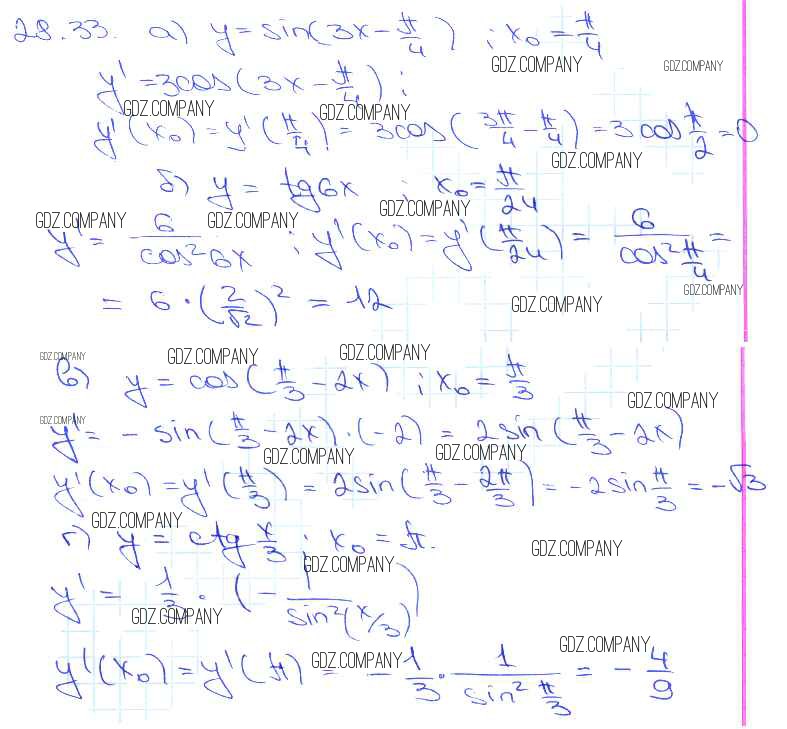 28.33. а) y = sin(3x - π/4) ; x₀ = π/4
GDZ.COMPANY GDZ.COMPANY
y' = 3cos(3x - π/4) ;
GDZ.COMPANY GDZ.COMPANY
y'(x₀) = y'(π/4) = 3cos(3π/4 - π/4) = 3cos π/2 = 0
GDZ.COMPANY
б) y = tg6x ; x₀ = π/24
GDZ.COMPANY GDZ.COMPANY GDZ.COMPANY
y' = 6/cos²6x ; y'(x₀) = y'(π/24) = 6/cos² π/4 =
GDZ.COMPANY
= 6 · (2/√2)² = 12
GDZ.COMPANY
GDZ.COMPANY GDZ.COMPANY GDZ.COMPANY
в) y = cos(π/3 - 2x) ; x₀ = π/3
GDZ.COMPANY
GDZ.COMPANY
y' = - sin(π/3 - 2x) · (-2) = 2sin(π/3 - 2x)
GDZ.COMPANY GDZ.COMPANY
y'(x₀) = y'(π/3) = 2sin(π/3 - 2π/3) = -2sin π/3 = -√3
GDZ.COMPANY
г) y = ctg x/3 ; x₀ = π.
GDZ.COMPANY
GDZ.COMPANY
y' = 1/3 · (- 1/sin²(x/3))
GDZ.COMPANY
GDZ.COMPANY
y'(x₀) = y'(π) = - 1/3 · 1/sin² π/3 = - 4/9
GDZ.COMPANY